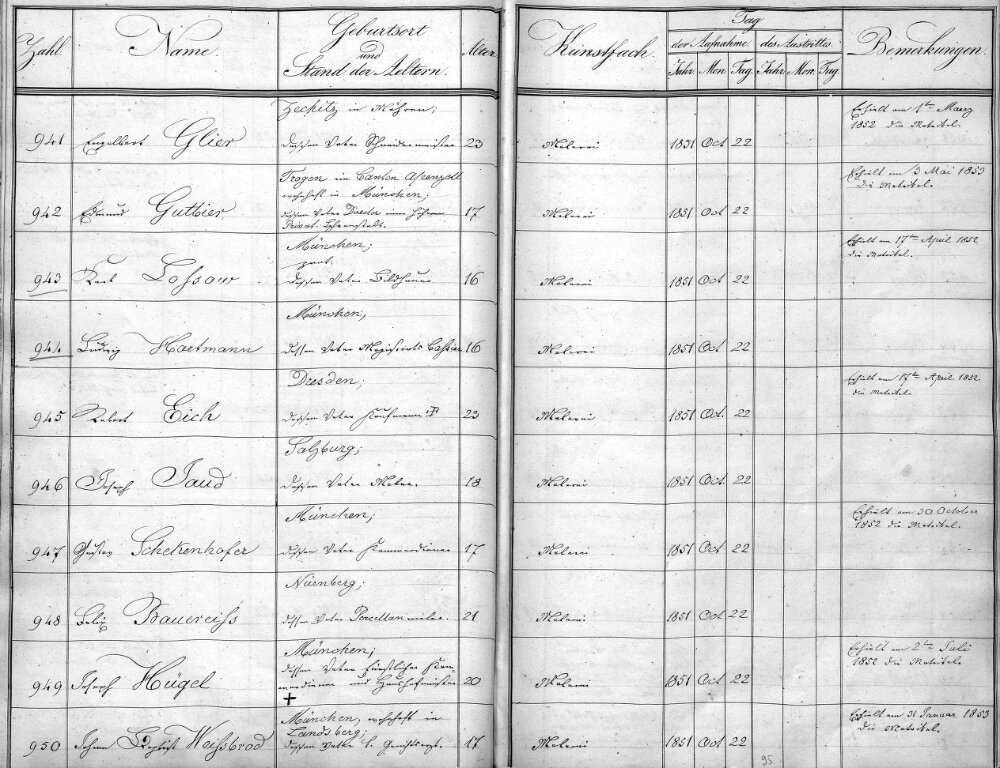 Zahl.
Name.
Geburtsort
und
Stand der Aeltern.
Alter
Kunstfach.
Tag
der Aufnahme
des Austrittes
Jahr. Mon. Tag. Jahr. Mon. Tag.
Bemerkungen.
941 Engelbert Glier
in Mähren;
dessen Vater Schneidermeister 23
Malerei 1851 Oct 22
Erhielt am 1ten Maerz
1852 die Matrikel.
942 Edmund Guttier
Trogen im Canton Apenzell
wohnhaft in München,
dessen Vater Director einer höheren
Privat-Lehranstalt. 17
Malerei 1851 Oct 22
Erhielt am 3 Mai 1853
die Matrikel.
943 Karl Lossow
München;
dessen Vater Bildhauer 16
Malerei 1851 Oct 22
Erhielt am 17ten April 1852
die Matrikel.
944 Ludwig Hartmann
München,
dessen Vater Magistrats Cassier 16
Malerei 1851 Oct 22
945 Robert Eich
Dresden;
dessen Vater Kaufmann 23
Malerei 1851 Oct. 22
Erhielt am 17ten April 1852.
die Matrikel.
946 Joseph Jaud
Salzburg;
dessen Vater Maler. 18
Malerei 1851 Oct 22
947 Gustav Schekenhofer
München;
dessen Vater Kammerdiener 17
Malerei 1851 Oct 22
Erhielt am 30 October
1852 die Matrikel.
948 Felix Bauereiss
Nürnberg;
dessen Vater Porcellanmaler. 21
Malerei 1851 Oct 22
949 Joseph Hügel
München;
dessen Vater fürstlicher Kam-
merdiener und Haushofmeister 20
Malerei 1851 Oct 22
Erhielt am 2ten Juli
1852 die Matrikel.
950 Johann Baptist Weissbrod
München, wohnhaft in
Landsberg;
dessen Vater k. Gerichtsarzt. 17
Malerei 1851 Oct 22
Erhielt am 31 Januar 1853
die Matrikel.
95